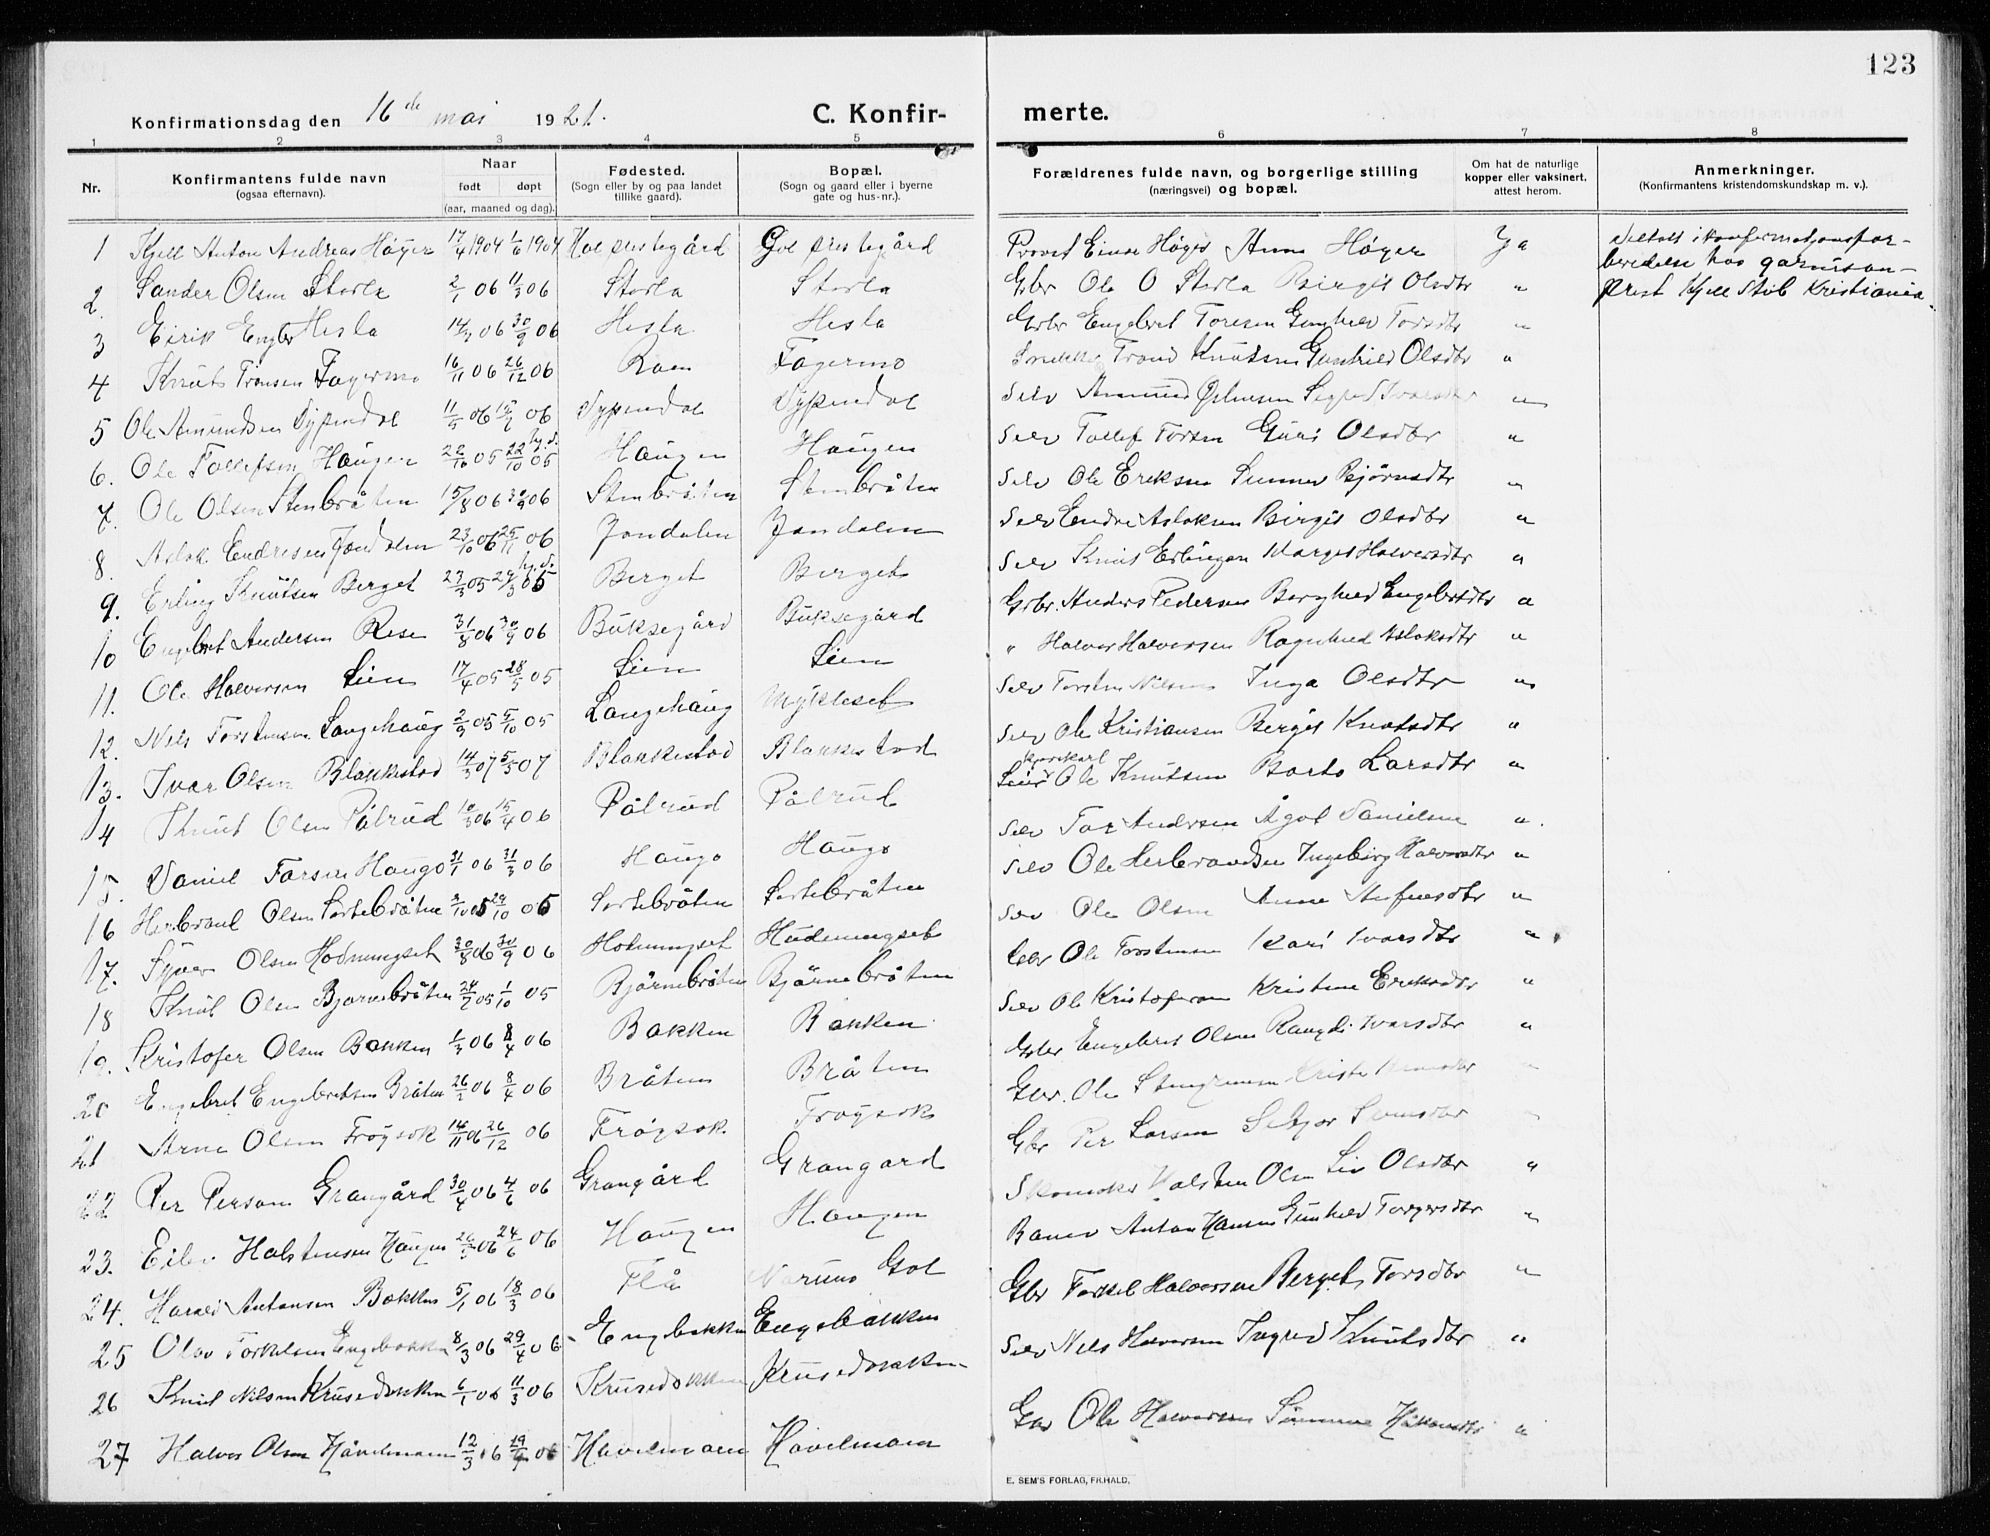 123
Konfirmationsdag den 16de mai 1921.
C. Konfir-
merte.
1 2 3 4 5 6 7 8
Nr. Konfirmantens fulde navn (ogsaa efternavn). Naar født døpt (aar, maaned og dag). Fødested. (Sogn eller by og paa landet tillike gaard). Bopæl. (Sogn og gaard eller i byerne gate og hus-nr.). Forældrenes fulde navn, og borgerlige stilling (næringsvei) og bopæl. Om hat de naturlige kopper eller vaksinert, attest herom. Anmerkninger. (Konfirmantens kristendomskundskap m. v.).
1 Kjell Anton Andreas Høyer 17/4 1904 1/6 1904 Gol prestegård Provst Høyer Anna Høyer Ja
prest Kjell Stub Kristiania.
2. Sander Olsen Storla 06 11/3 06 Storla Storla Gbr Ole O Storla Birgit Olsdtr "
3 Eirik Engbr Hesla 06 30/9 06 Hesla Hesla Gbr Engebret Toresen Gunhild Torsdtr "
4 Knut Tronsen Fagermo 16/11 06 26/12 06 Roen Fagermo Trond Knutsen Gunhild Olsdtr "
5 Ole Amundsen 11/5 06 06 Selv Amund "
6. Ole Tollefsen Haugen 22/10 05 22/10 05 Haugen Haugen Selv Tollef Torsen Guri Olsdtr "
7. Ole Olsen Stenbråten 15/8 06 30/9 06 Stenbråten Stenbråten Selv Ole Eriksen Sunnev Bjørnsdtr "
8. Aslak Endresen Jondalen 23/10 06 25/11 06 Jondalen Jondalen Selv Endre Aslaksen Birgit Olsdtr "
9. Erling Knutsen Berget 05 05 Berget Berget Selv Knut Erlingsen Margit Halvorsdtr "
10 Engebret Andersen Rese 31/8 06 30/9 06 Buksegård Buksegård Gbr. Anders Pedersen Borghild Engebretsdtr "
11. Ole Halvorsen Lien 17/4 05 28/5 05 Lien Lien " Halvor Halvorsen Ragnhild Aslaksdtr "
12. Nils Torstensen Langehaug 2/9 05 5/10 05 Langehaug Mykleset Selv Torsten Nilsen Inga Olsdtr "
13. Ivar Olsen Blakkestad 14/3 07 5/5 07 Blakkestad Blakkestad Selv Ole Kristiansen Bergit Knutsdtr "
14 Knut Olsen Pålrud 10/3 06 15/4 06 Pålrud Pålrud Ole Knutsen Barbo Larsdtr "
15. Daniel Torsen Haugo 21/1 06 31/3 06 Haugo Haugo Selv Tor Andersen Ågot Danielsen "
16 Herbrand Olsen Sortebråten 05 29/10 05 Sortebråten Sortebråten Selv Ole Herbrandsen Ingebirg Halvorsdtr "
17. Syver Olsen Hodnungset 30/8 06 30/9 06 Hodnungset Hudnungset Selv Ole Olsen Anne "
18 Knut Olsen Bjørnebråten 24/7 05 1/10 05 Bjørnebråten Bjørnebråten Gbr Ole Torstensen Kari Ivarsdtr "
19. Kristofer Olsen Bakken 1/3 06 8/4 06 Bakken Bakken Selv Ole Kristofersen Kristine Eriksdtr "
20 Engebret Engebretsen Bråten 26/2 06 8/4 06 Bråten Bråten Gbr Engebret Olsen Rangdi Ivarsdtr "
21 Arne Olsen Frøysok 14/11 06 26/12 06 Frøysok Frøysok Gbr. Ole
22 Per Persen Grangård 30/4 06 4/6 06 Grangård Grangard Gbr Per Larsen
23. Halstensen Haugen 06 24/6 06 Haugen Haugen Skomaker Halsten Olsen Liv Olsdtr "
24. Harald Antonsen Bakken 5/1 06 18/3 06 Flå Gol Baner Anton Hansen Gunhild Torgersdtr "
25 Olav Torkelsen Engebakken 8/3 06 29/4 06 Engebakken Engebakken Gbr Torkel Halvorsen Berget Torsdtr "
26 Knut Nilsen Krusedokken 6/1 06 11/3 06 Krusedokken Krusedokken Selv Nils Halvorsen Ingrid Knutsdtr "
27 Halvor Olsen Håvelmoen 12/3 06 06 Havelmoen Håvelmoen Gbr Ole Halvorsen "
E. SEM'S FORLAG, FR.HALD.